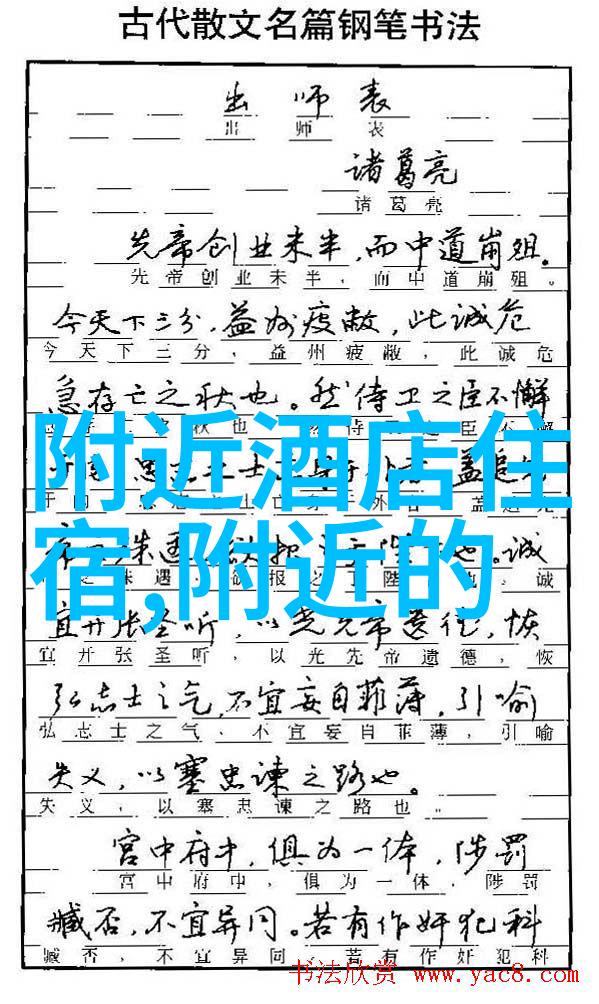 古代散文名篇钢笔书法
出师表
出师表
诸葛亮
诸葛亮
先帝创业未半，而中道崩殂。
先帝创业未半，而中道崩殂。
今天下三分，益州疲敝，此诚危
今天下三分，益州疲敝，此诚危
急存亡之秋也。然侍卫之臣不懈
秋也 臣不懈
附近酒店住
宿,附近的
诚
遇 报 陛 诚
宜开张圣听，以光先帝遗德，恢
宜开张圣听，以光先帝遗德，恢
弘志士之气，不宜妄自菲薄，引喻
弘志士之气，不宜妄自菲薄，引喻
失义，以塞忠谏之路也。
失义，以塞忠谏之路也。
宫中府中，俱为一体，陟罚
宫中府中，俱为一体，陟罚
臧否，不宜异同。若有作奸犯科
臧否，不宜异同。若有作奸犯科
书法欣赏 www.yac8.com